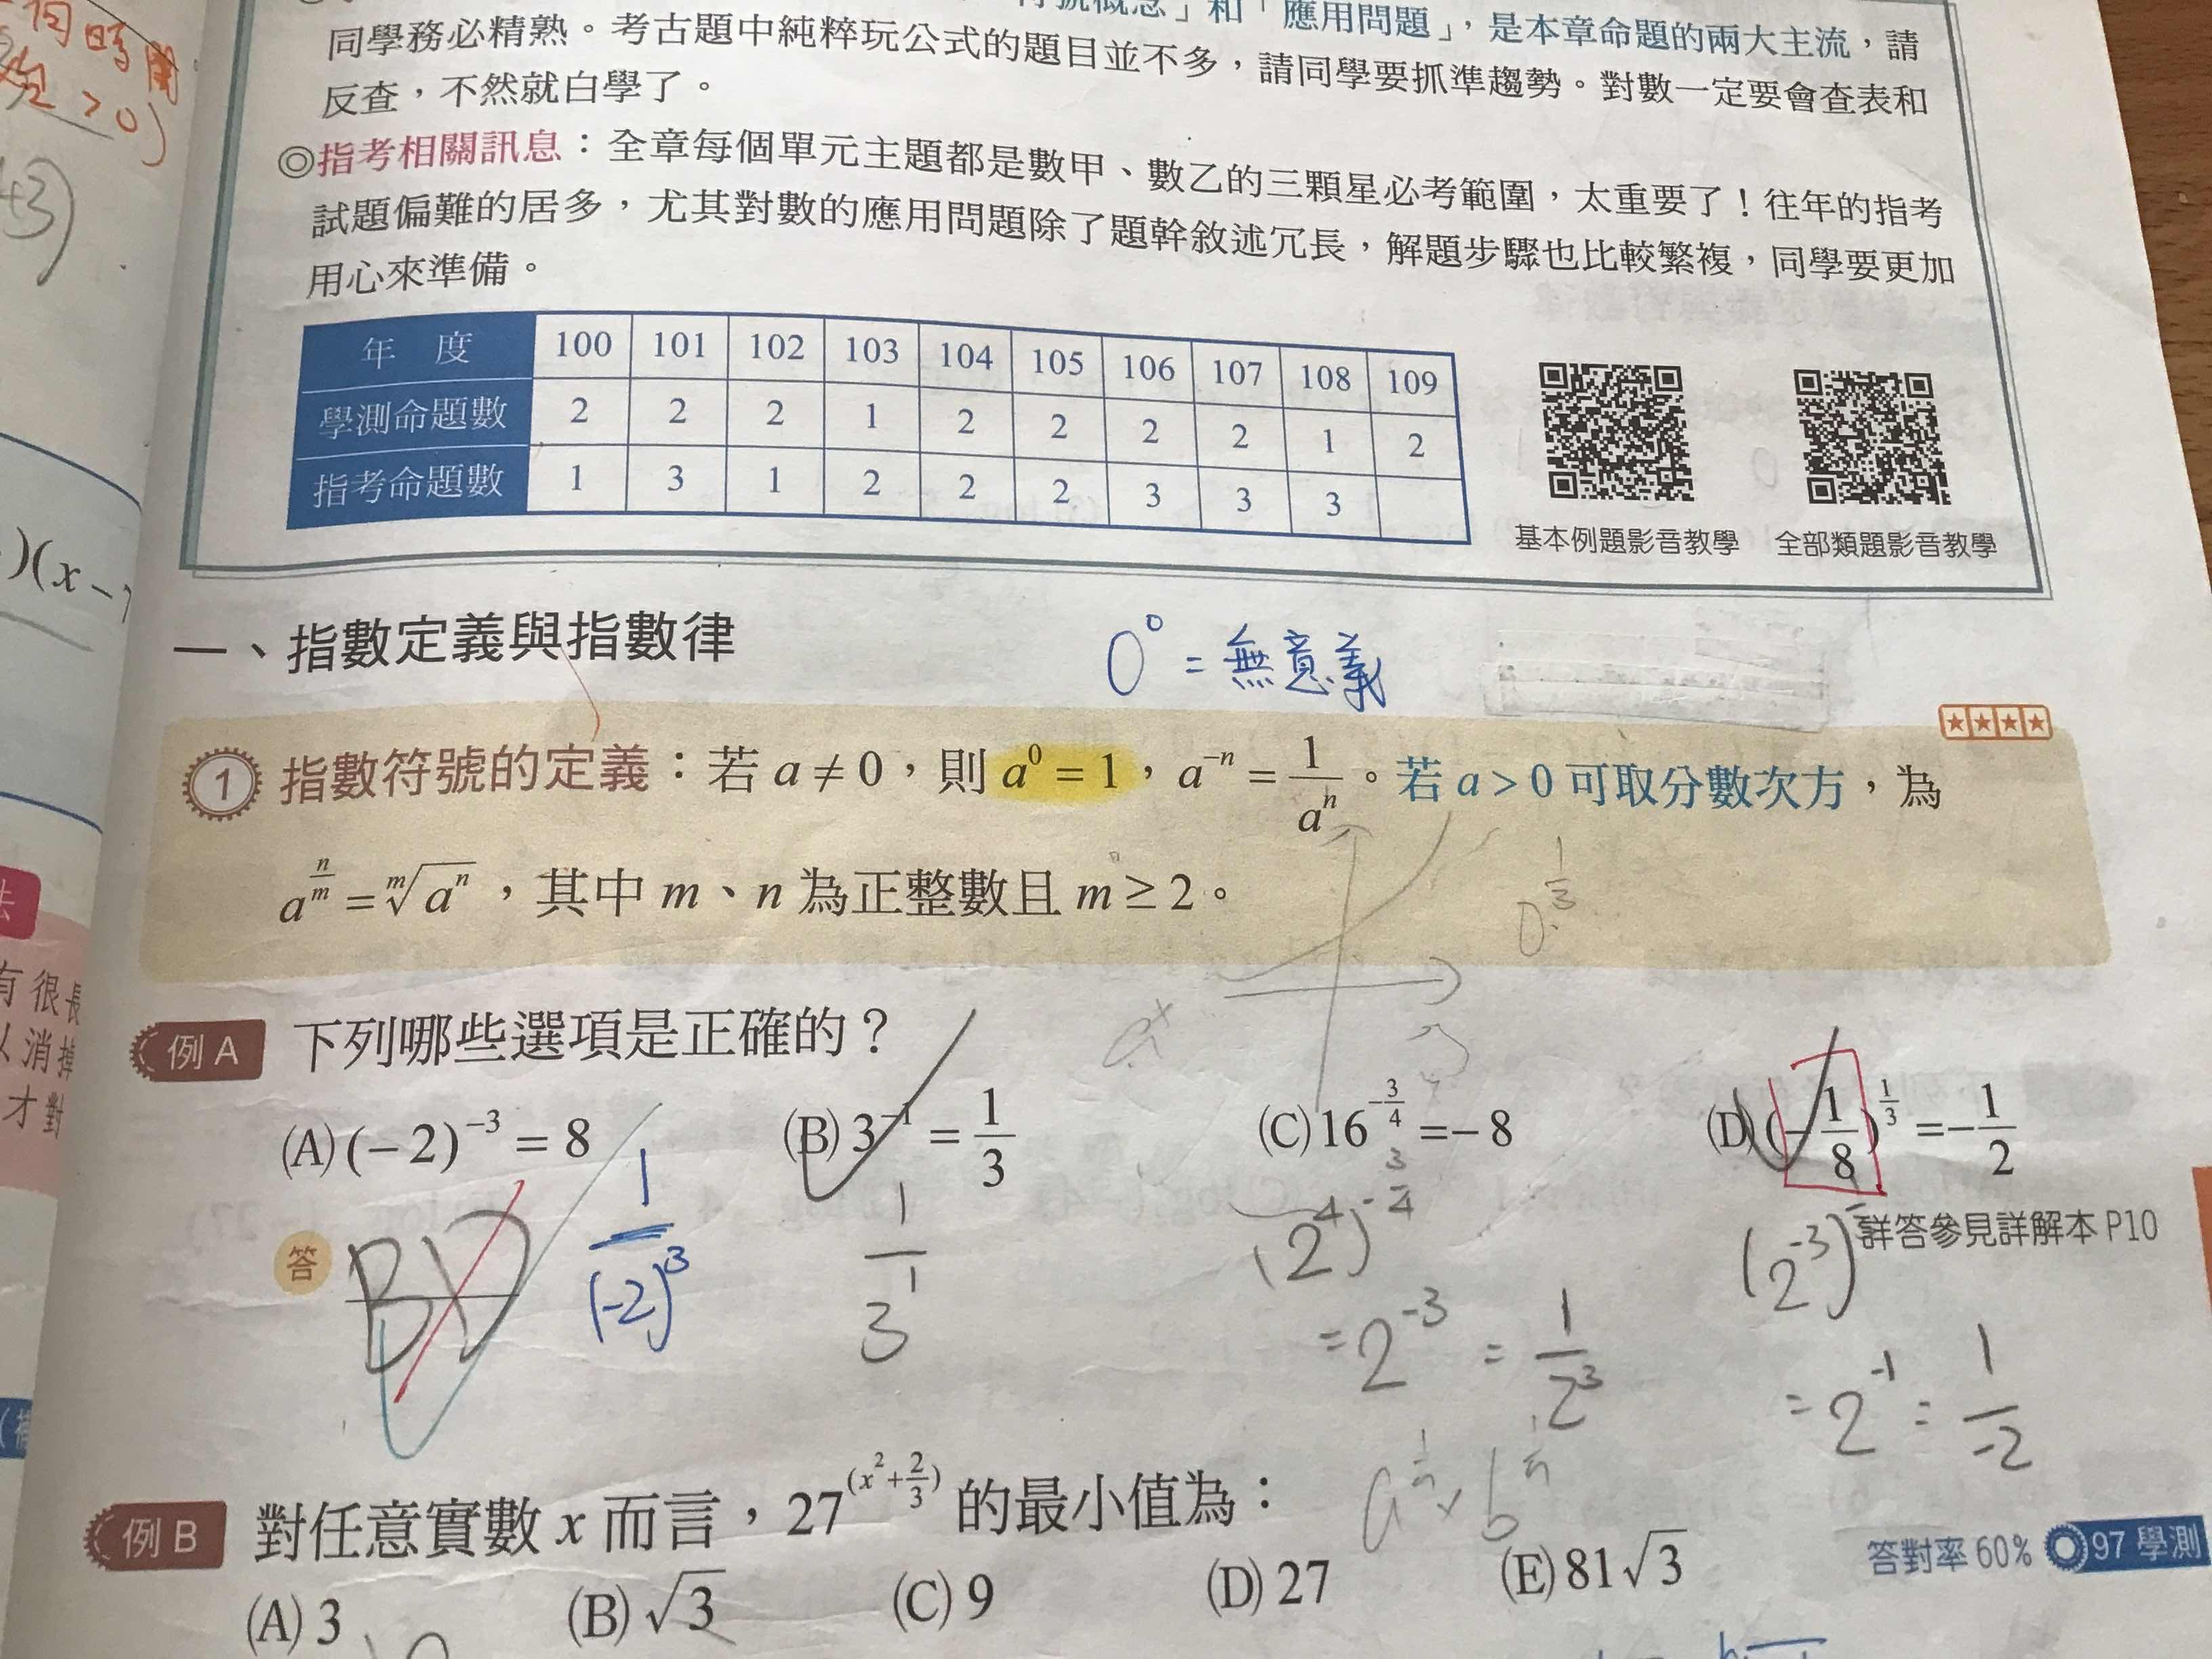 有時用
>0)
+3)
符號概念」和「應用問題」，是本章命題的兩大主流，請
同學務必精熟。考古題中純粹玩公式的題目並不多，請同學要抓準趨勢。對數一定要會查表和
反查，不然就白學了。
◎指考相關訊息：全章每個單元主題都是數甲、數乙的三顆星必考範圍，太重要了！往年的指考
試題偏難的居多，尤其對數的應用問題除了題幹敘述冗長，解題步驟也比較繁複，同學要更加
用心來準備。
年 度 100 101 102 103 104 105 106 107 108 109
學測命題數 2 2 2 1 2 2 2 2 1 2
指考命題數 1 3 1 2 2 2 3 3 3
基本例題影音教學 全部類題影音教學
)(x-
一、指數定義與指數律
0⁰ = 無意義
① 指數符號的定義：若 a ≠ 0，則 a⁰ = 1，a⁻ⁿ = 1/aⁿ。若 a > 0 可取分數次方，為
a^(n/m) = ᵐ√(aⁿ)，其中 m、n 為正整數且 m ≥ 2。
0^(1/3)
法
有很長
以消掉
才對
aˣ
例 A 下列哪些選項是正確的？
(A) (-2)⁻³ = 8 (B) 3⁻¹ = 1/3 (C) 16^(-3/4) = -8 (D) (-1/8)^(1/3) = -1/2
詳答參見詳解本 P10
答 BD
1/(-2)³
1/3¹
(2⁴)^(-3/4)
= 2⁻³ = 1/2³
(2⁻³)
= 2⁻¹ = 1/-2
a^(1/n) × b^(1/n)
例 B 對任意實數 x 而言，27^(x²+2/3) 的最小值為：
答對率 60% 97 學測
(A) 3 (B) √3 (C) 9 (D) 27 (E) 81√3